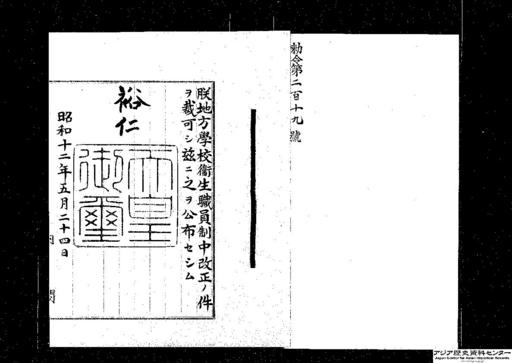 勅令第二百十九號
朕地方學校衞生職員制中改正ノ件
ヲ裁可シ茲ニ之ヲ公布セシム
裕仁
天皇御璽
昭和十二年五月二十四日
アジア歴史資料センター
Japan Center for Asian Historical Records